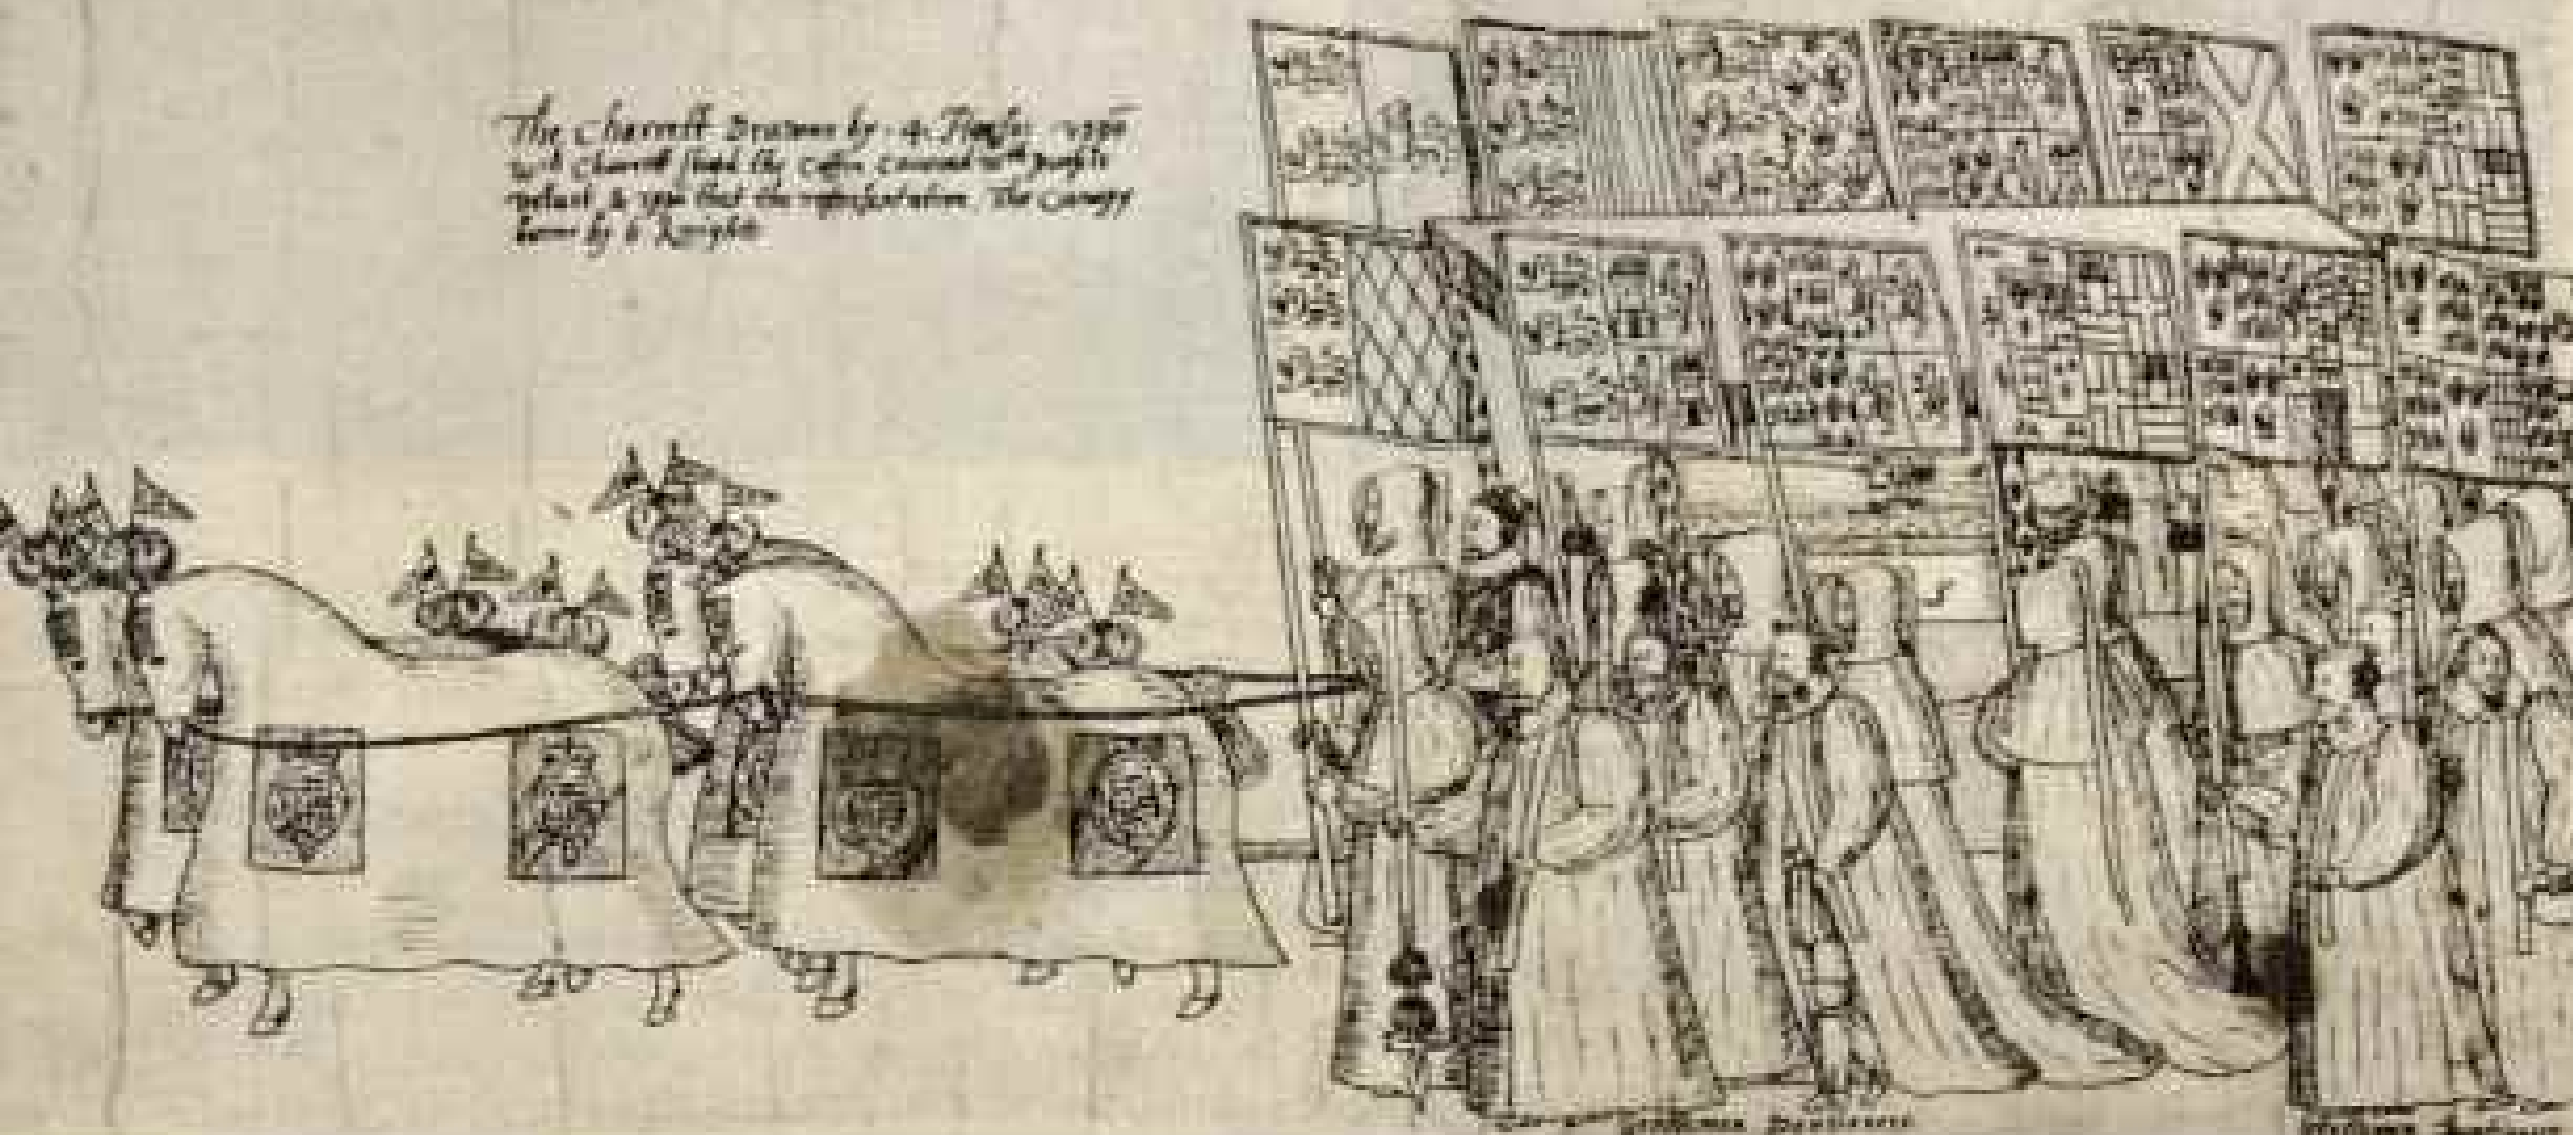 The Charrett Drawne by 4 Horses vppon
wch Charrett stood the Coffin Couered wth purple
veluett & vpon that the representation, The Canapy
borne by 6 Knights
Gentlemen Pentioners
Gentlemen Pentioners